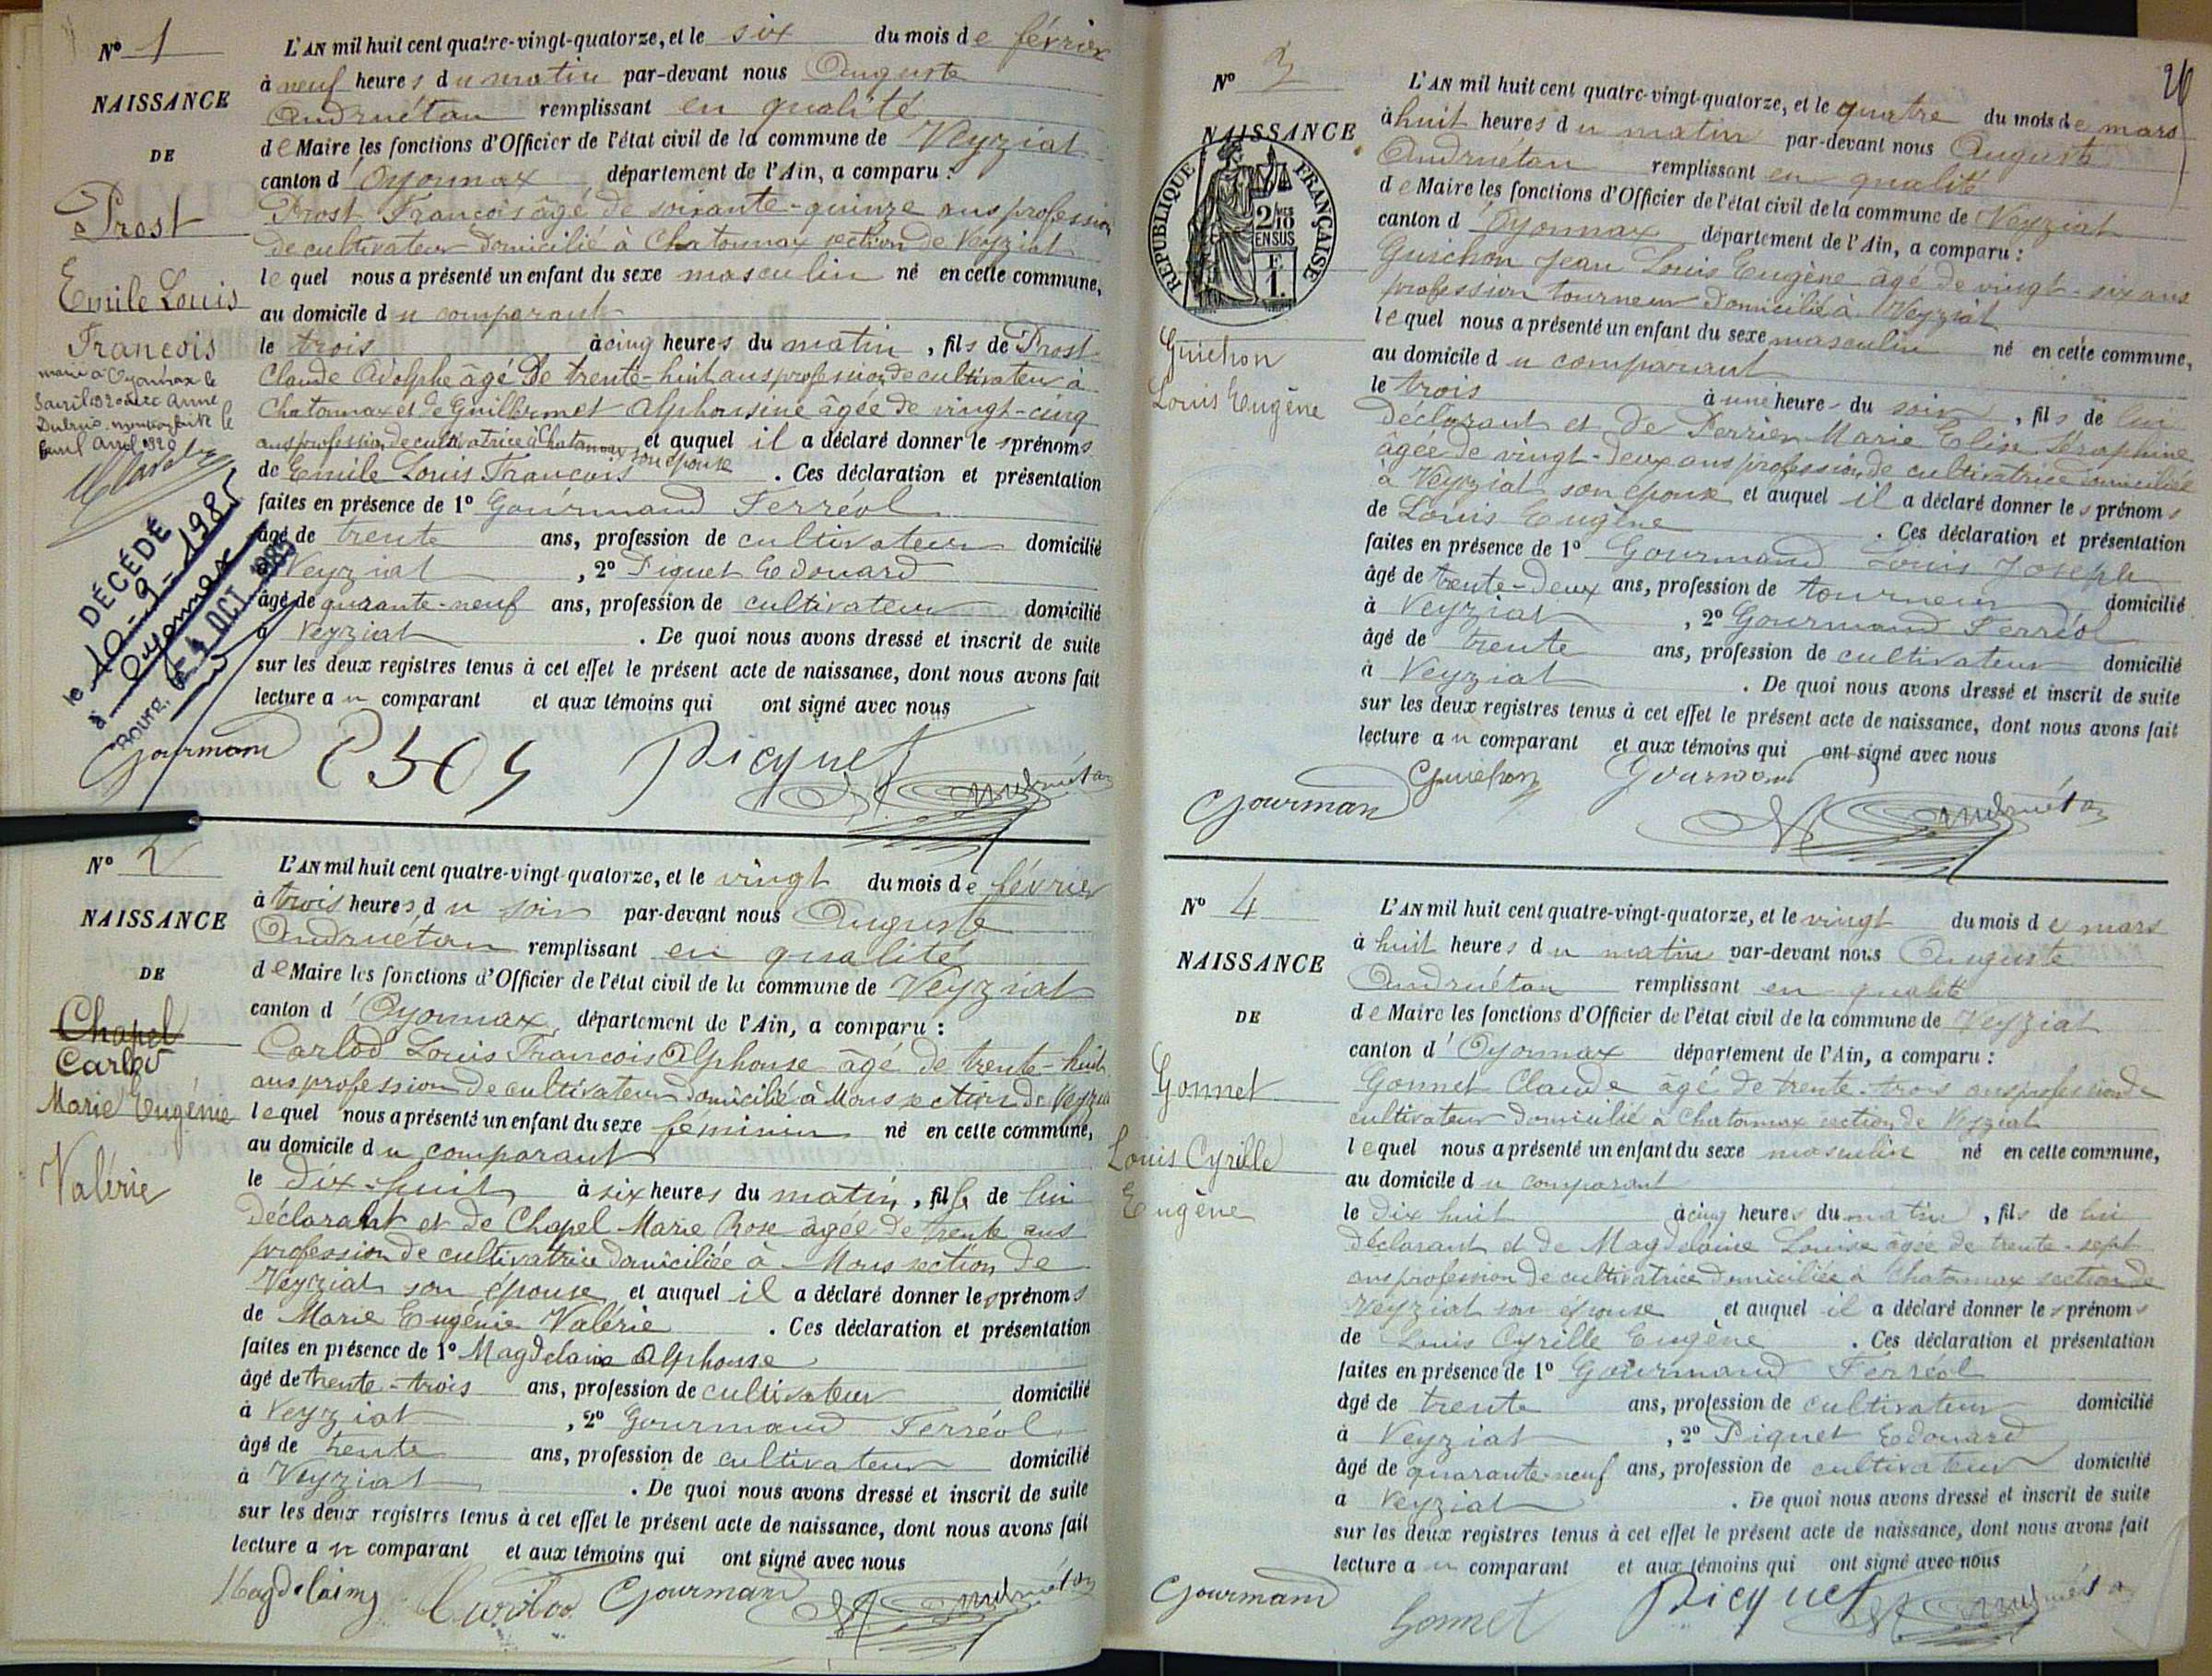 N° 1
NAISSANCE
DE
Prost
Emile Louis
François
marié à Oyonnax le
avril 1920 avec Anne
le
avril 1920
DÉCÉDÉ
le 10-9-1985
à Oyonnax
BOURG, LE 4 OCT. 1985
L'AN mil huit cent quatre-vingt-quatorze, et le six du mois de février
à neuf heures du matin par-devant nous Auguste
Andruétan remplissant en qualité
de Maire les fonctions d'Officier de l'état civil de la commune de Veyziat
canton d'Oyonnax département de l'Ain, a comparu :
Prost François âgé de soixante-quinze ans profession
de cultivateur domicilié à Chatonnax section de Veyziat
lequel nous a présenté un enfant du sexe masculin né en cette commune,
au domicile du comparant
le trois à cinq heures du matin, fils de Prost
Claude Adolphe âgé de trente-huit ans profession de cultivateur à
Chatonnax et de Guillermet Alphonsine âgée de vingt-cinq
ans profession de cultivatrice à Chatonnax son épouse et auquel il a déclaré donner les prénoms
de Emile Louis François. Ces déclaration et présentation
faites en présence de 1° Gourmand Ferréol
âgé de trente ans, profession de cultivateur domicilié
à Veyziat, 2° Piquet Edouard
âgé de quarante-neuf ans, profession de cultivateur domicilié
à Veyziat. De quoi nous avons dressé et inscrit de suite
sur les deux registres tenus à cet effet le présent acte de naissance, dont nous avons fait
lecture au comparant et aux témoins qui ont signé avec nous
Gourmand Picquet Andruétan
N° 2
NAISSANCE
DE
Chapel
Carlod
Marie Eugénie
Valérie
L'AN mil huit cent quatre-vingt-quatorze, et le vingt du mois de février
à trois heures du soir par-devant nous Auguste
Andruétan remplissant en qualité
de Maire les fonctions d'Officier de l'état civil de la commune de Veyziat
canton d'Oyonnax, département de l'Ain, a comparu :
Carlod Louis François Alphonse âgé de trente-huit
ans profession de cultivateur domicilié à Mons section de Veyziat
lequel nous a présenté un enfant du sexe féminin né en cette commune,
au domicile du comparant
le dix-huit à six heures du matin, fille de lui
déclarant et de Chapel Marie Rose âgée de trente ans
profession de cultivatrice domiciliée à Mons section de
Veyziat son épouse et auquel il a déclaré donner les prénoms
de Marie Eugénie Valérie. Ces déclaration et présentation
faites en présence de 1° Magdelaine Alphonse
âgé de trente-trois ans, profession de cultivateur domicilié
à Veyziat, 2° Gourmand Ferréol
âgé de trente ans, profession de cultivateur domicilié
à Veyziat. De quoi nous avons dressé et inscrit de suite
sur les deux registres tenus à cet effet le présent acte de naissance, dont nous avons fait
lecture au comparant et aux témoins qui ont signé avec nous
Magdelaine Carlod Gourmand Andruétan
N° 3
NAISSANCE
RÉPUBLIQUE FRANÇAISE
2/10 EN SUS
E
1.
Guichon
Louis Eugène
L'AN mil huit cent quatre-vingt-quatorze, et le quatre du mois de mars
à huit heures du matin par-devant nous Auguste
Andruétan remplissant en qualité
de Maire les fonctions d'Officier de l'état civil de la commune de Veyziat
canton d'Oyonnax département de l'Ain, a comparu :
Guichon Jean Louis Eugène âgé de vingt-six ans
profession tourneur domicilié à Veyziat
lequel nous a présenté un enfant du sexe masculin né en cette commune,
au domicile du comparant
le trois à une heure du soir, fils de lui
déclarant et de Perrier Marie Elise Séraphine
âgée de vingt-deux ans profession de cultivatrice domiciliée
à Veyziat son épouse et auquel il a déclaré donner les prénoms
de Louis Eugène. Ces déclaration et présentation
faites en présence de 1° Gourmand Louis Joseph
âgé de trente-deux ans, profession de tourneur domicilié
à Veyziat, 2° Gourmand Ferréol
âgé de trente ans, profession de cultivateur domicilié
à Veyziat. De quoi nous avons dressé et inscrit de suite
sur les deux registres tenus à cet effet le présent acte de naissance, dont nous avons fait
lecture au comparant et aux témoins qui ont signé avec nous
Gourmand Guichon Gourmand Andruétan
N° 4
NAISSANCE
DE
Gonnet
Louis Cyrille
Eugène
L'AN mil huit cent quatre-vingt-quatorze, et le vingt du mois de mars
à huit heures du matin par-devant nous Auguste
Andruétan remplissant en qualité
de Maire les fonctions d'Officier de l'état civil de la commune de Veyziat
canton d'Oyonnax département de l'Ain, a comparu :
Gonnet Claude âgé de trente-trois ans profession de
cultivateur domicilié à Chatonnax section de Veyziat
lequel nous a présenté un enfant du sexe masculin né en cette commune,
au domicile du comparant
le dix huit à cinq heures du matin, fils de lui
déclarant et de Magdelaine Louise âgée de trente-sept
ans profession de cultivatrice domiciliée à Chatonnax section de
Veyziat son épouse et auquel il a déclaré donner les prénoms
de Louis Cyrille Eugène. Ces déclaration et présentation
faites en présence de 1° Gourmand Ferréol
âgé de trente ans, profession de cultivateur domicilié
à Veyziat, 2° Piquet Edouard
âgé de quarante-neuf ans, profession de cultivateur domicilié
à Veyziat. De quoi nous avons dressé et inscrit de suite
sur les deux registres tenus à cet effet le présent acte de naissance, dont nous avons fait
lecture au comparant et aux témoins qui ont signé avec nous
Gourmand Gonnet Picquet Andruétan